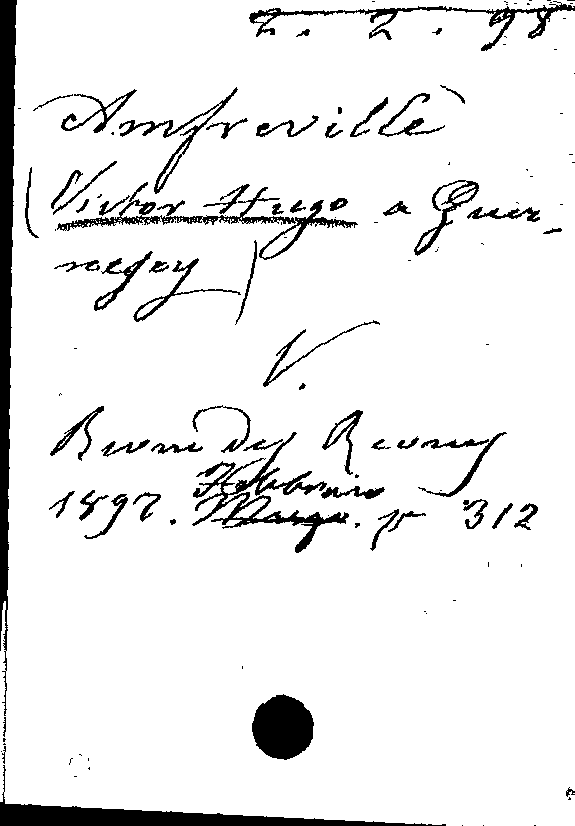 2. 2. 98
Amfreville
(Victor Hugo a Guer-
nesey)
V.
Revue des Revues
Febbraio
1897. Marzo. p 312